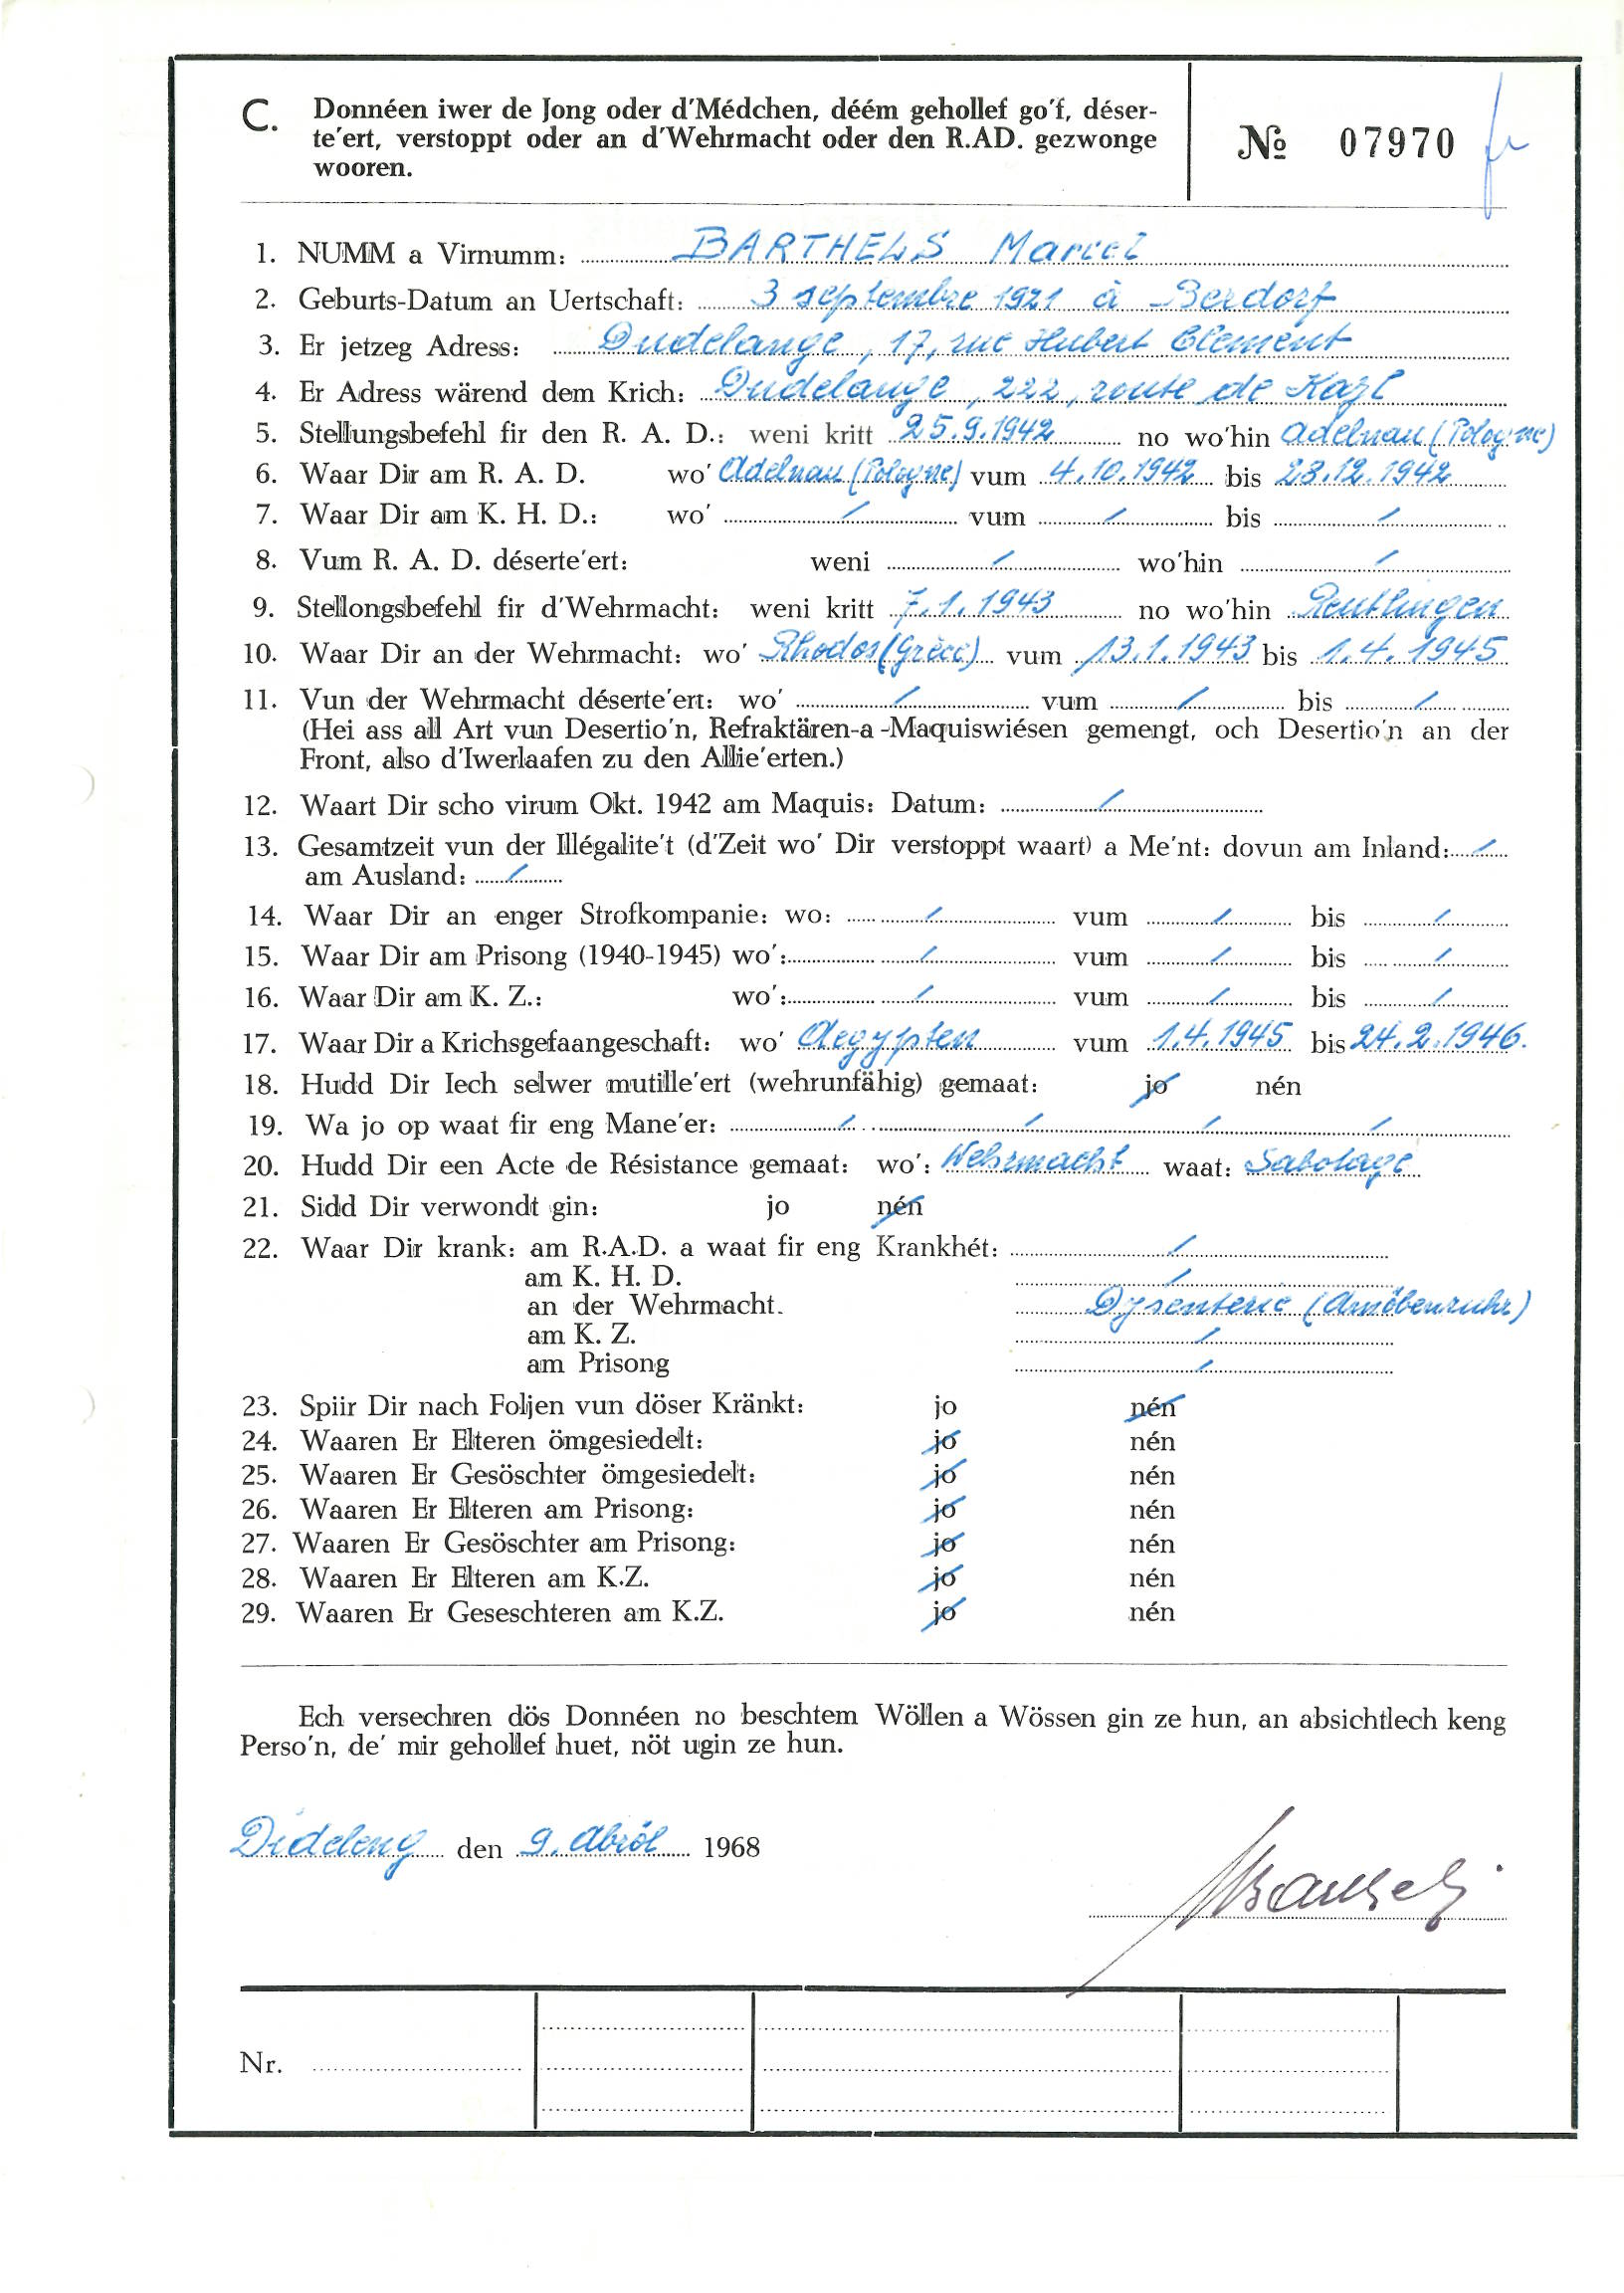 C. Donnéen iwer de Jong oder d'Médchen, déém gehollef go'f, déser-
te'ert, verstoppt oder an d'Wehrmacht oder den R.AD. gezwonge
wooren.
№ 07970
1. NUMM a Virnumm: BARTHELS Marcel
2. Geburts-Datum an Uertschaft: 3 septembre 1921 à Berdorf
3. Er jetzeg Adress: Dudelange, 17, rue Hubert Clement
4. Er Adress wärend dem Krich: Dudelange, 222, route de Kayl
5. Stellungsbefehl fir den R. A. D.: weni kritt 25.9.1942 no wo'hin Adelnau (Pologne)
6. Waar Dir am R. A. D. wo' Adelnau (Pologne) vum 4.10.1942 bis 23.12.1942
7. Waar Dir am K. H. D.: wo' / vum / bis /
8. Vum R. A. D. déserte'ert: weni / wo'hin /
9. Stellongsbefehl fir d'Wehrmacht: weni kritt 7.1.1943 no wo'hin Reutlingen
10. Waar Dir an der Wehrmacht: wo' Rhodos (Grèce) vum 13.1.1943 bis 1.4.1945
11. Vun der Wehrmacht déserte'ert: wo' / vum / bis /
(Hei ass all Art vun Desertio'n, Refraktären-a-Maquiswiésen gemengt, och Desertio'n an der
Front, also d'Iwerlaafen zu den Allie'erten.)
12. Waart Dir scho virum Okt. 1942 am Maquis: Datum: /
13. Gesamtzeit vun der Illégalite't (d'Zeit wo' Dir verstoppt waart) a Me'nt: dovun am Inland: /
am Ausland: /
14. Waar Dir an enger Strofkompanie: wo: / vum / bis /
15. Waar Dir am Prisong (1940-1945) wo': / vum / bis /
16. Waar Dir am K. Z.: wo': / vum / bis /
17. Waar Dir a Krichsgefaangeschaft: wo' Aegypten vum 1.4.1945 bis 24.2.1946.
18. Hudd Dir Iech selwer mutille'ert (wehrunfähig) gemaat: jo nén
19. Wa jo op waat fir eng Mane'er: / / / /
20. Hudd Dir een Acte de Résistance gemaat: wo': Wehrmacht waat: Sabotage
21. Sidd Dir verwondt gin: jo nén
22. Waar Dir krank: am R.A.D. a waat fir eng Krankhét: /
am K. H. D. /
an der Wehrmacht. Dysenterie (Amöbenruhr)
am K. Z. /
am Prisong /
23. Spiir Dir nach Foljen vun döser Kränkt: jo nén
24. Waaren Er Elteren ömgesiedelt: jo nén
25. Waaren Er Gesöschter ömgesiedelt: jo nén
26. Waaren Er Elteren am Prisong: jo nén
27. Waaren Er Gesöschter am Prisong: jo nén
28. Waaren Er Elteren am K.Z. jo nén
29. Waaren Er Geseschteren am K.Z. jo nén
Ech versechren dös Donnéen no beschtem Wöllen a Wössen gin ze hun, an absichtlech keng
Perso'n, de' mir gehollef huet, nöt ugin ze hun.
Dideleng den 9. Abröl 1968
Nr.